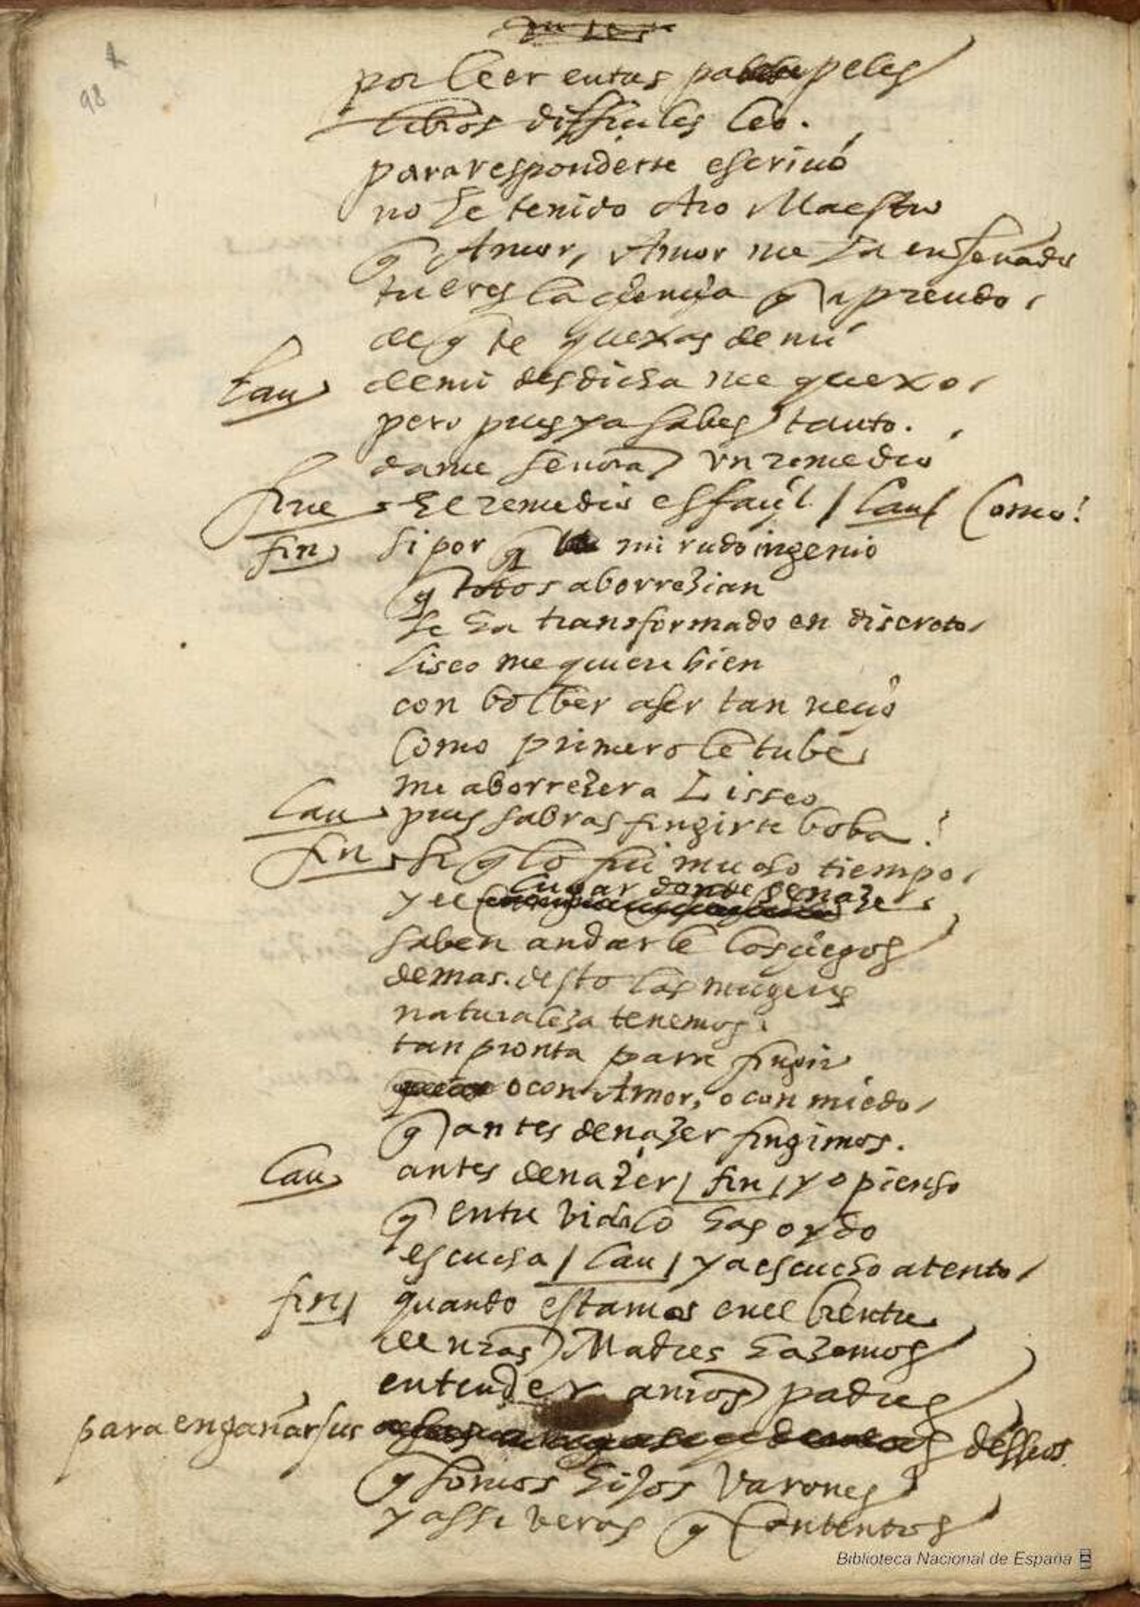 98
por leer en tus papeles
libros difficiles leo.
para responderte escriuo
no he tenido otro Maestro
q Amor, Amor me ha enseñado
tu eres la çiençia q aprendo
de q te quexas de mi
Lau de mi desdicha me quexo
pero pues ya sabes tanto.
dame señora un remedio
fine El remedio es façil / Lau / Como?
fin si por q mi rudo ingenio
q todos aborrezian
se ha transformado en discreto
Liseo me quiere bien
con bolber a ser tan neçio
Como primero le tube
me aborrezera Lisseo
Lau pues sabras fingirte boba?
fin si q lo fui mucho tiempo
lugar donde se naze
y el
saben andar le los çiegos
demas. desto las mugeres
naturaleza tenemos
tan pronta para fingir
o con Amor, o con miedo
q antes de nazer fingimos.
Lau antes de nazer / fin / yo pienso
q en tu vida lo has oydo
escucha / Lau / ya escucho atento
fin quando estamos en el bientre
de nras Madres hazemos
entender a nros padres
para engañar sus desseos
q somos hijos varones
y assi veras q contentos
Biblioteca Nacional de España